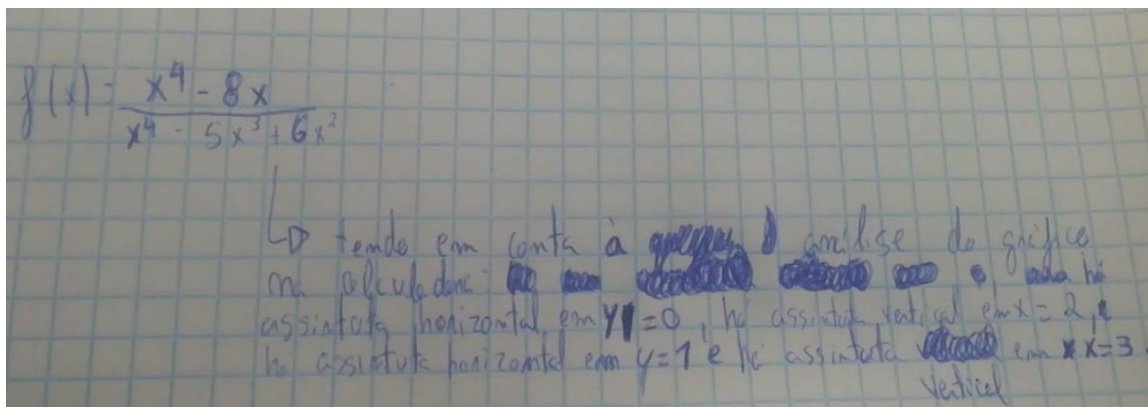 f(x) = x⁴ - 8x / x⁴ - 5x³ + 6x²
↳ tendo em conta à análise do gráfico
na calculadora há
assintota horizontal em y=0, há assintota vertical em x=2, e
há assintota horizontal em y=1 e há assintota em x=3.
vertical